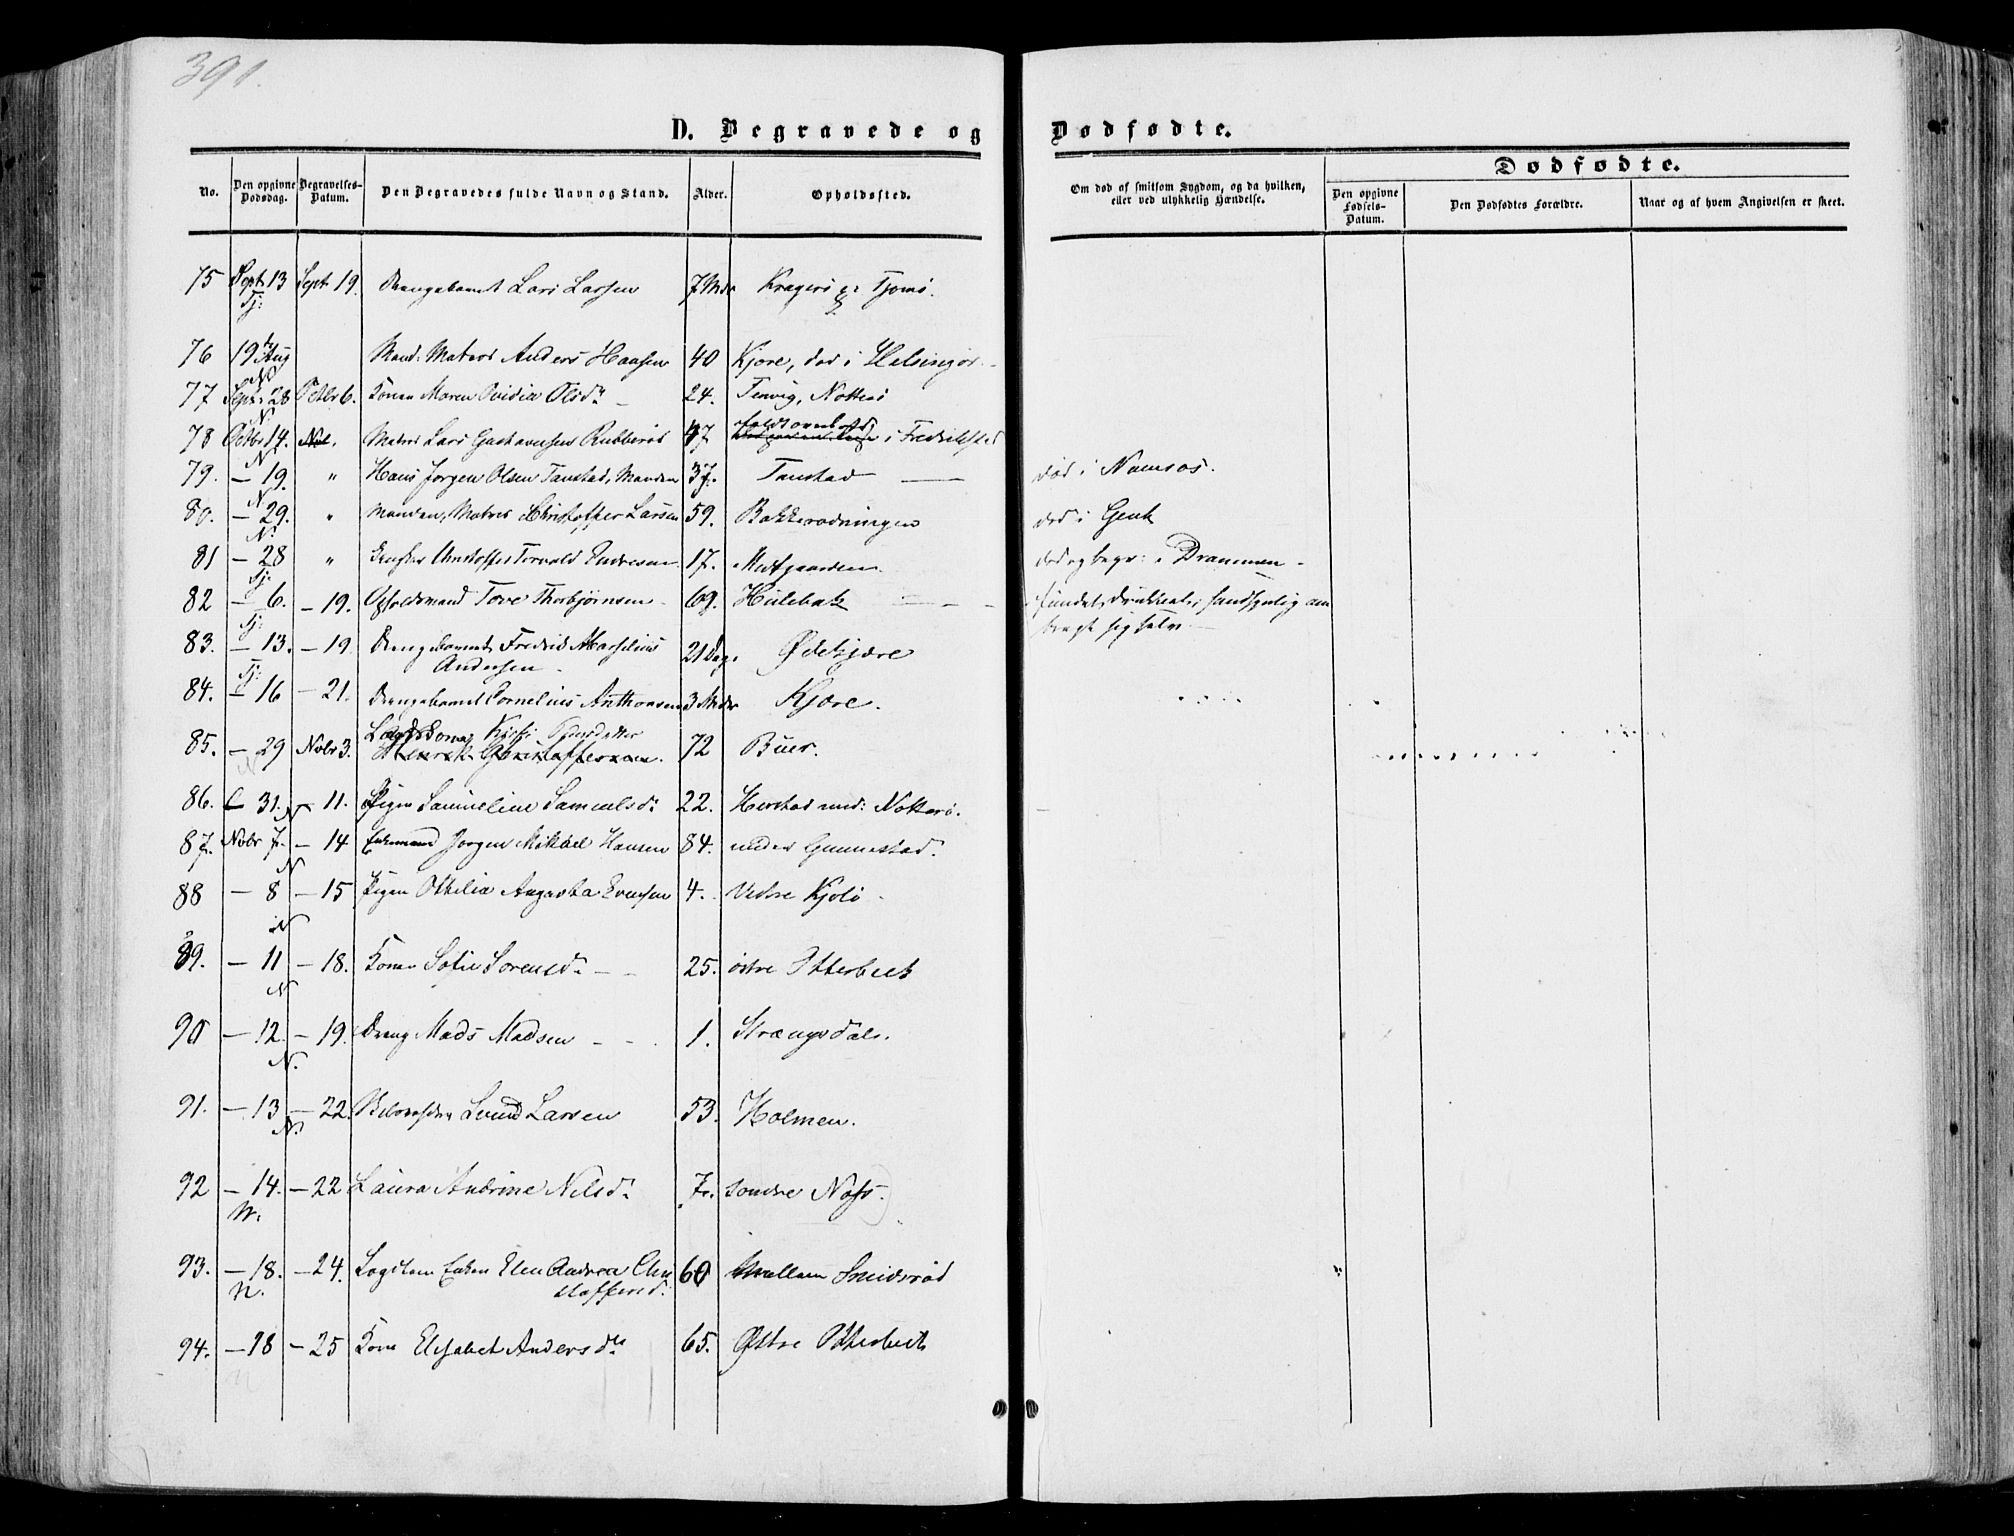 391.
D. Begravede og Dødfødte.
No. Den opgivne Dødsdag. Begravelses-Datum. Den Begravedes fulde Navn og Stand. Alder. Opholdssted. Om død af smitsom Sygdom, og da hvilken, eller ved ulykkelig Hændelse. Dødfødte. Den opgivne Fødsels-Datum. Den Dødfødtes Forældre. Naar og af hvem Angivelsen er skeet.
75 Sept 13 Sept 19. Drengebarnet Lars Larsen 7 Mdr Kragerø Tjømø.
Tj:
76 19 Aug Mand: Matros Anders Hansen 40 Kjøre, død i Helsingør.
N
77 Sept 28 Octbr 6. Konen Maren Ovidia Olsdr 24. Tenvig, Nøtterø
N
78 Octbr 14. Matros Lars Gustavesen Rubberød 47 i Fredrikstad
N
79. — 19. " Hans Jørgen Olsen Tanstad, Manden 37. Tanstad — død i Namsos.
N
80. — 29. " Manden, Matros Christoffer Larsen 59. Bakkerødningen død i Gent
N.
81 — 28 " Christoffer Torvald Endresen 17. Medgaarden død og begr: i Drammen -
Tj.
82 — 6. — 19. Opholdsmand Tove Thorbjørnsen 69. Hulebak — fundet druknet, sandsynlig ombragt sig selv
Tj:
83. — 13. — 19. Drengebarnet Fredrik Marselius Andersen 21 Dag. Ødekjære
Tj:
84. — 16 — 21. Drengebarnet Cornelius Anthonsen 3 Mdr Kjøre.
85. — 29 Novbr 3. Kirsti Pedersdatter 72 Buer.
Henrik Christoffersen.
N
86. — 31. — 11. Pigen Samueline Samuelsdr 22. Herstad und: Nøtterø.
N
87. Novbr 7. — 14 Enkemand Jørgen Mikkel Hansen 84. under Gunnestad.
N
88 — 8 — 15 Pigen Othilia Augusta Evensen 4. Vestre Kjølø
N
89. — 11 — 18. Konen Sofie Sørensdr — 25. østre Otterbeck
N
90 — 12. — 19. Dreng Mads Madsen 1. Strængsdal.
N.
91. — 13 — 22 Svend Larsen 53. Holmen.
N.
92 — 14. — 22 Laura Andrine Nilsdr 7. søndre Næs.
N.
93. — 18. — 24. Logslem Enken Elen Andrea Chri stoffersdr. 60 Mellem Smidsrød
N.
94. — 18 — 25 Kone Elisabet Andersdr 65. Østre Otterbeck